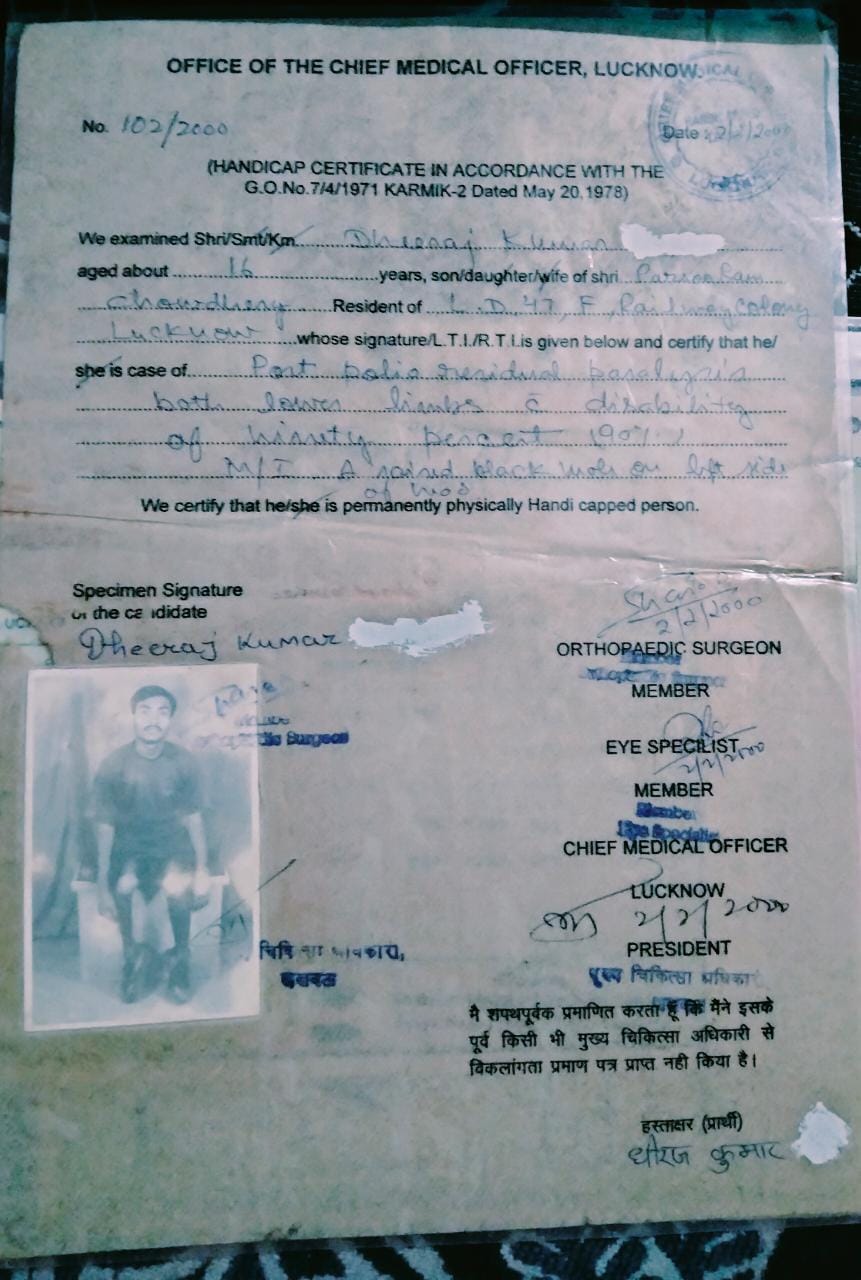 OFFICE OF THE CHIEF MEDICAL OFFICER, LUCKNOW.
No. 102/2000
Date 2/2/2000
(HANDICAP CERTIFICATE IN ACCORDANCE WITH THE
G.O.No.7/4/1971 KARMIK-2 Dated May 20,1978)
We examined Shri/Smt/Km. Dheeraj Kumar
aged about 16 years, son/daughter/wife of shri
Chowdhery Resident of L.D. 47, F, Railway colony
Lucknow whose signature/L.T.I./R.T.I.is given below and certify that he/
she is case of Post polio residual paralysis
both lower limbs c̄ disability
of ninety percent (90%)
M/I A raised black mole on left side
of
We certify that he/she is permanently physically Handi capped person.
Specimen Signature
of the candidate
Dheeraj Kumar
2/2/2000
ORTHOPAEDIC SURGEON
Orthopaedic Surgeon
MEMBER
EYE SPECILIST
2/2/2000
MEMBER
Member
Eye Specialist
CHIEF MEDICAL OFFICER
LUCKNOW
2/2/2000
PRESIDENT
मुख्य चिकित्सा अधिकारी
मै शपथपूर्वक प्रमाणित करता हूँ कि मैंने इसके
पूर्व किसी भी मुख्य चिकित्सा अधिकारी से
विकलांगता प्रमाण पत्र प्राप्त नही किया है।
हस्ताक्षर (प्रार्थी)
धीरज कुमार